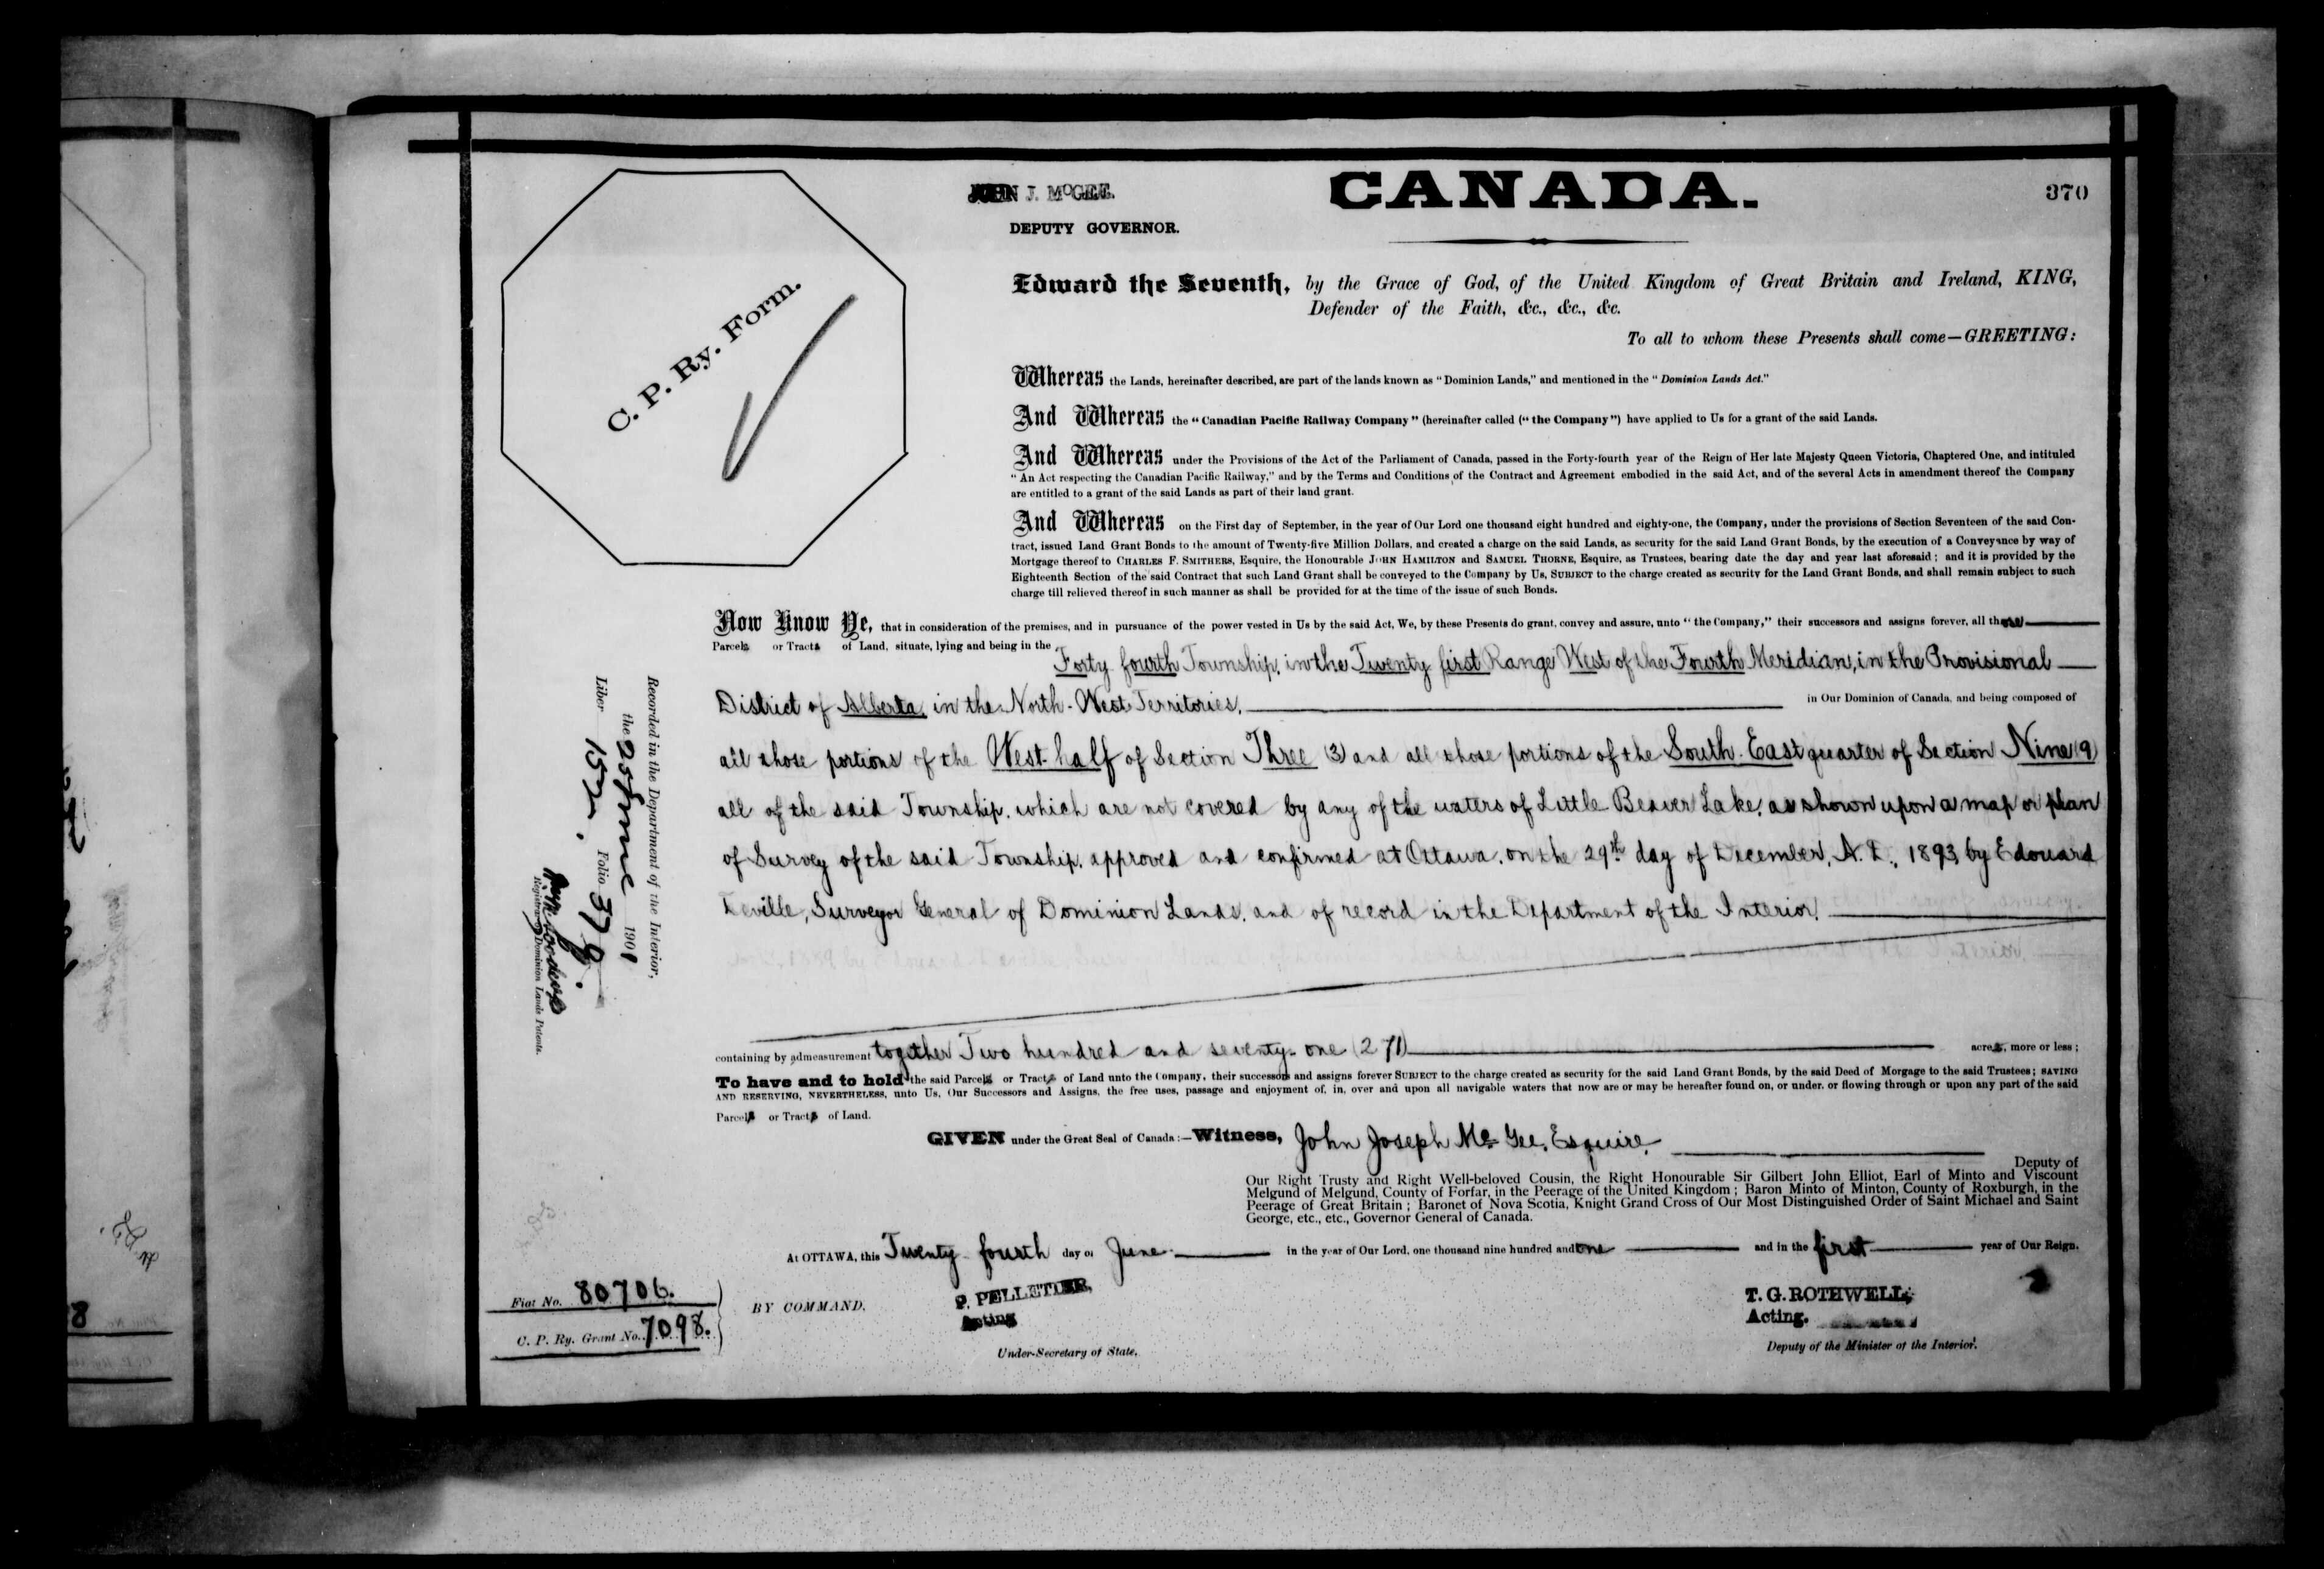 JOHN J. McGEE.
DEPUTY GOVERNOR.
CANADA.
370
C. P. Ry. Form.
Edward the Seventh, by the Grace of God, of the United Kingdom of Great Britain and Ireland, KING,
Defender of the Faith, &c., &c., &c.
To all to whom these Presents shall come—GREETING:
Whereas the Lands, hereinafter described, are part of the lands known as "Dominion Lands," and mentioned in the "Dominion Lands Act."
And Whereas the "Canadian Pacific Railway Company" (hereinafter called ("the Company") have applied to Us for a grant of the said Lands.
And Whereas under the Provisions of the Act of the Parliament of Canada, passed in the Forty-fourth year of the Reign of Her late Majesty Queen Victoria, Chaptered One, and intituled
"An Act respecting the Canadian Pacific Railway," and by the Terms and Conditions of the Contract and Agreement embodied in the said Act, and of the several Acts in amendment thereof the Company
are entitled to a grant of the said Lands as part of their land grant.
And Whereas on the First day of September, in the year of Our Lord one thousand eight hundred and eighty-one, the Company, under the provisions of Section Seventeen of the said Con-
tract, issued Land Grant Bonds to the amount of Twenty-five Million Dollars, and created a charge on the said Lands, as security for the said Land Grant Bonds, by the execution of a Conveyance by way of
Mortgage thereof to CHARLES F. SMITHERS, Esquire, the Honourable JOHN HAMILTON and SAMUEL THORNE, Esquire, as Trustees, bearing date the day and year last aforesaid; and it is provided by the
Eighteenth Section of the said Contract that such Land Grant shall be conveyed to the Company by Us, SUBJECT to the charge created as security for the Land Grant Bonds, and shall remain subject to such
charge till relieved thereof in such manner as shall be provided for at the time of the issue of such Bonds.
Now Know Ye, that in consideration of the premises, and in pursuance of the power vested in Us by the said Act, We, by these Presents do grant, convey and assure, unto "the Company," their successors and assigns forever, all those
Parcels or Tracts of Land, situate, lying and being in the Forty fourth Township, in the Twenty first Range West of the Fourth Meridian, in the Provisional
District of Alberta, in the North-West Territories, in Our Dominion of Canada, and being composed of
all those portions of the West half of Section Three (3) and all those portions of the South-East quarter of Section Nine (9)
all of the said Township, which are not covered by any of the waters of Little Beaver Lake, as shown upon a map or plan
of Survey of the said Township, approved and confirmed at Ottawa, on the 29th day of December, A. D., 1893, by Edouard
Deville, Surveyor General of Dominion Lands, and of record in the Department of the Interior,
containing by admeasurement together Two hundred and seventy-one (271) acres, more or less;
To have and to hold the said Parcels or Tracts of Land unto the Company, their successors and assigns forever SUBJECT to the charge created as security for the said Land Grant Bonds, by the said Deed of Morgage to the said Trustees; SAVING
AND RESERVING, NEVERTHELESS, unto Us, Our Successors and Assigns, the free uses, passage and enjoyment of, in, over and upon all navigable waters that now are or may be hereafter found on, or under, or flowing through or upon any part of the said
Parcels or Tracts of Land.
GIVEN under the Great Seal of Canada:—Witness, John Joseph McGee, Esquire,
Deputy of
Our Right Trusty and Right Well-beloved Cousin, the Right Honourable Sir Gilbert John Elliot, Earl of Minto and Viscount
Melgund of Melgund, County of Forfar, in the Peerage of the United Kingdom; Baron Minto of Minton, County of Roxburgh, in the
Peerage of Great Britain; Baronet of Nova Scotia, Knight Grand Cross of Our Most Distinguished Order of Saint Michael and Saint
George, etc., etc., Governor General of Canada.
At OTTAWA, this Twenty fourth day of June in the year of Our Lord, one thousand nine hundred and one and in the first year of Our Reign.
BY COMMAND,
P. PELLETIER,
Acting
Under-Secretary of State.
T. G. ROTHWELL,
Acting.
Deputy of the Minister of the Interior.
Recorded in the Department of the Interior,
the 25 June 1901
Liber 152. Folio 370.
Registrar Dominion Lands Patents.
Fiat No. 80706.
C. P. Ry. Grant No. 7098.